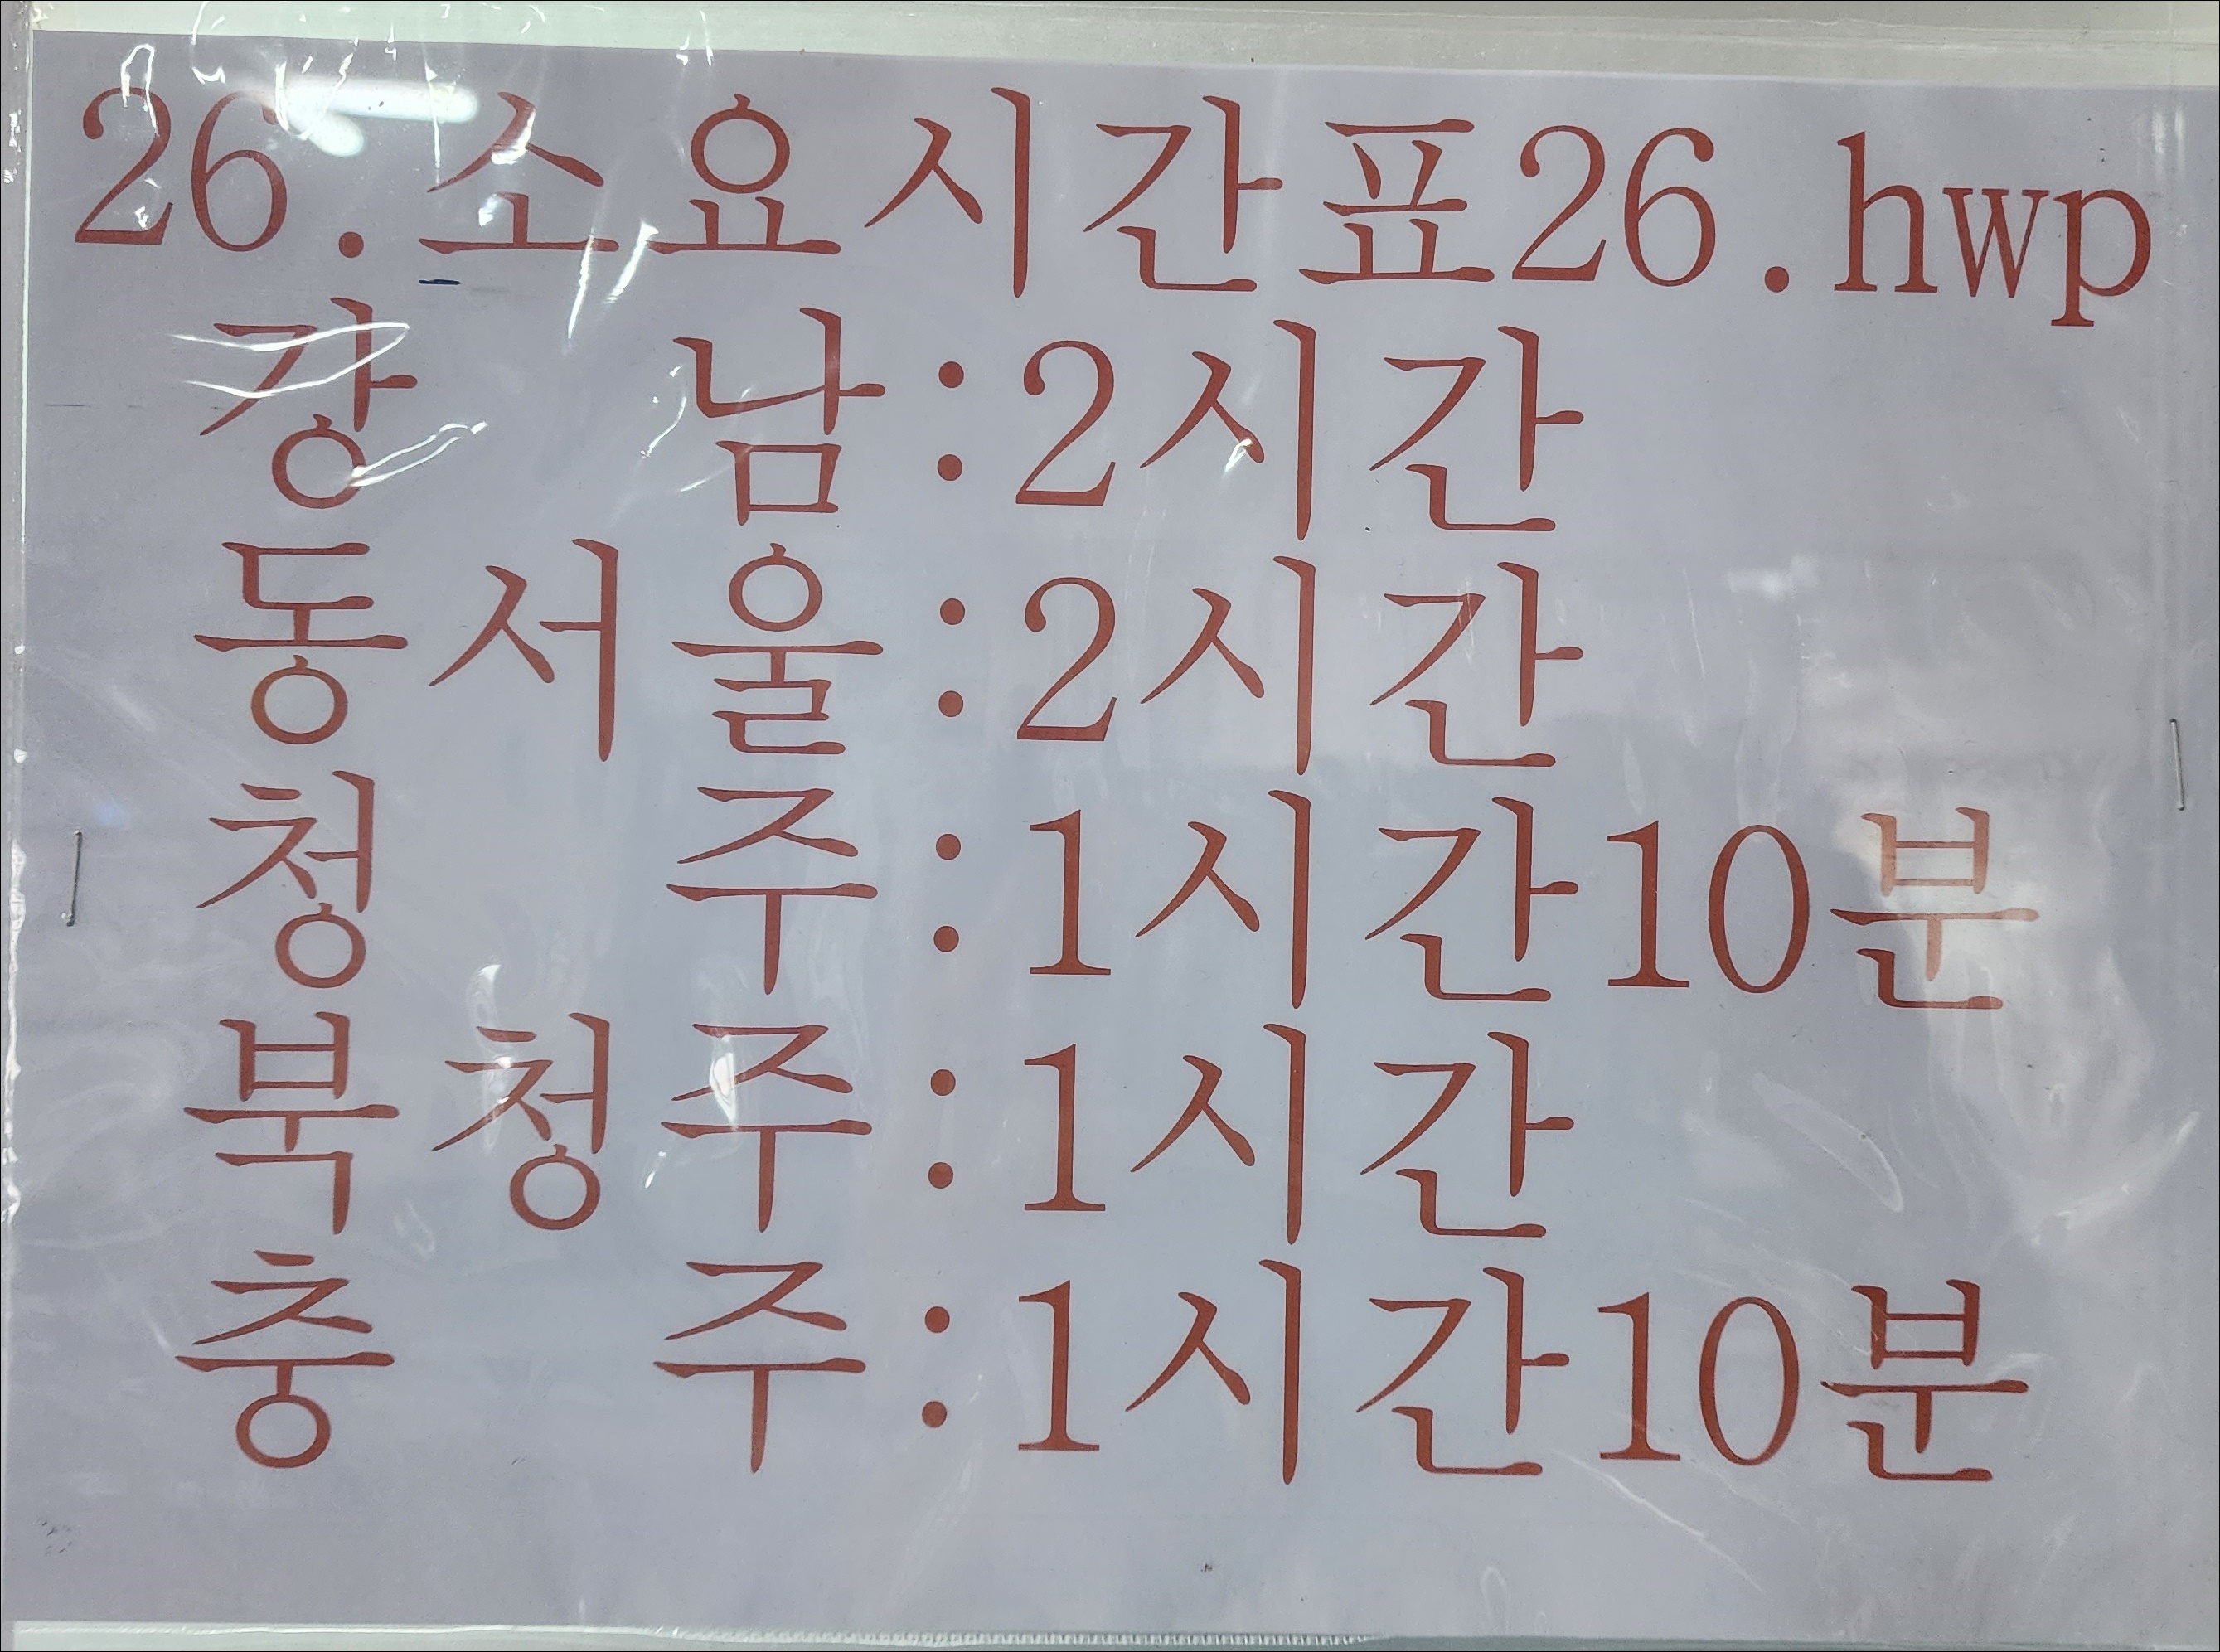 26.소요시간표26.hwp
강 남:2시간
동서울:2시간
청 주:1시간10분
북청주:1시간
충 주:1시간10분